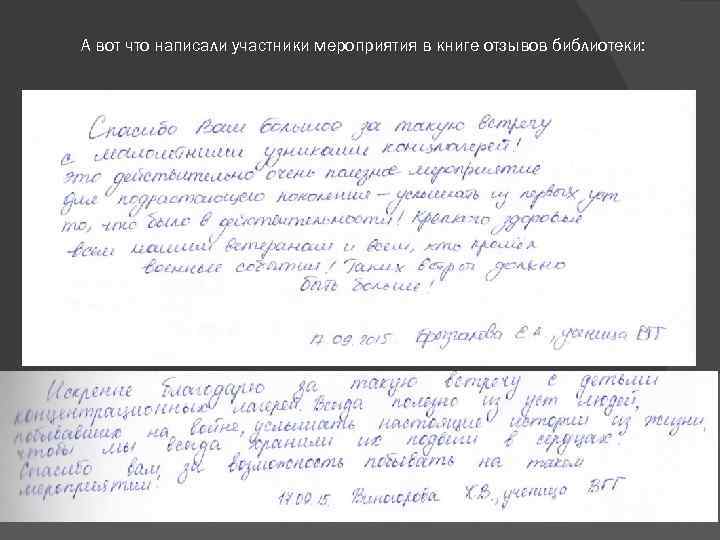 А вот что написали участники мероприятия в книге отзывов библиотеки:
Спасибо Вам большое за такую встречу
с малолетними узниками концлагерей!
Это действительно очень полезное мероприятие
для подрастающего поколения – услышать из первых уст
то, что было в действительности! Крепкого здоровья
всем нашим ветеранам и всем, кто прошёл
военные события! Таких встреч должно
быть больше!
17.09.2015. Е.А., ученица ВГГ
Искренне благодарю за такую встречу с детьми
концентрационных лагерей. Всегда полезно из уст людей,
побывавших на войне, услышать настоящие истории из жизни,
чтобы мы всегда хранили их подвиги в сердцах!
Спасибо вам за возможность побывать на таком
мероприятии!
17.09.15. Виногорова Х.В., ученица ВГГ